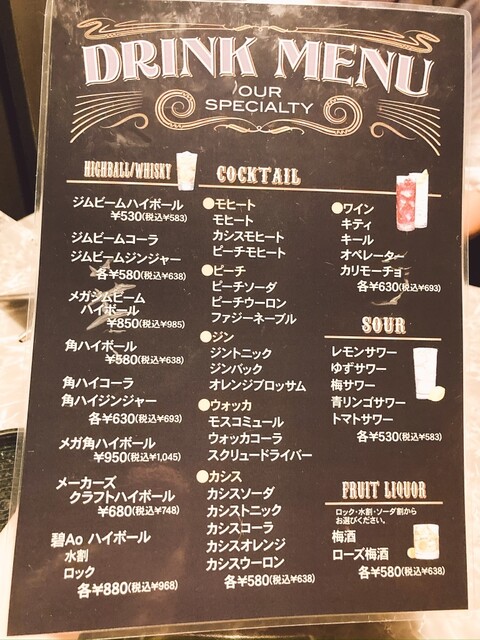 DRINK MENU
OUR
SPECIALTY
HIGHBALL/WHISKY
ジムビームハイボール
¥530(税込¥583)
ジムビームコーラ
ジムビームジンジャー
各¥580(税込¥638)
メガジムビーム
ハイボール
¥850(税込¥985)
角ハイボール
¥580(税込¥638)
角ハイコーラ
角ハイジンジャー
各¥630(税込¥693)
メガ角ハイボール
¥950(税込¥1,045)
メーカーズ
クラフトハイボール
¥680(税込¥748)
碧Ao ハイボール
水割
ロック
各¥880(税込¥968)
COCKTAIL
モヒート
モヒート
カシスモヒート
ピーチモヒート
ピーチ
ピーチソーダ
ピーチウーロン
ファジーネーブル
ジン
ジントニック
ジンバック
オレンジブロッサム
ウォッカ
モスコミュール
ウォッカコーラ
スクリュードライバー
カシス
カシスソーダ
カシストニック
カシスコーラ
カシスオレンジ
カシスウーロン
各¥580(税込¥638)
ワイン
キティ
キール
オペレーター
カリモーチョ
各¥630(税込¥693)
SOUR
レモンサワー
ゆずサワー
梅サワー
青リンゴサワー
トマトサワー
各¥530(税込¥583)
FRUIT LIQUOR
ロック・水割・ソーダ割から
お選びください。
梅酒
ローズ梅酒
各¥580(税込¥638)